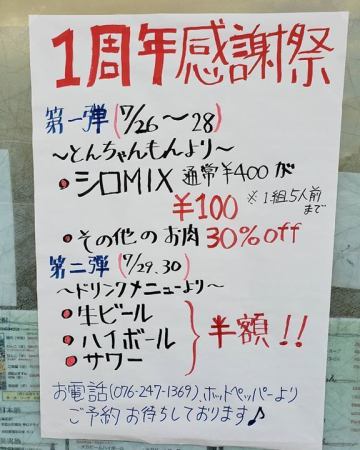 1周年感謝祭
第一弾(7/26〜28)
〜とんちゃんもんより〜
・シロMIX 通常¥400が
¥100 ※1組5人前まで
・その他のお肉 30%off
第二弾(7/29.30)
〜ドリンクメニューより〜
・生ビール
・ハイボール
・サワー
半額!!
お電話(076-247-1369)、ホットペッパーより
ご予約お待ちしております♪